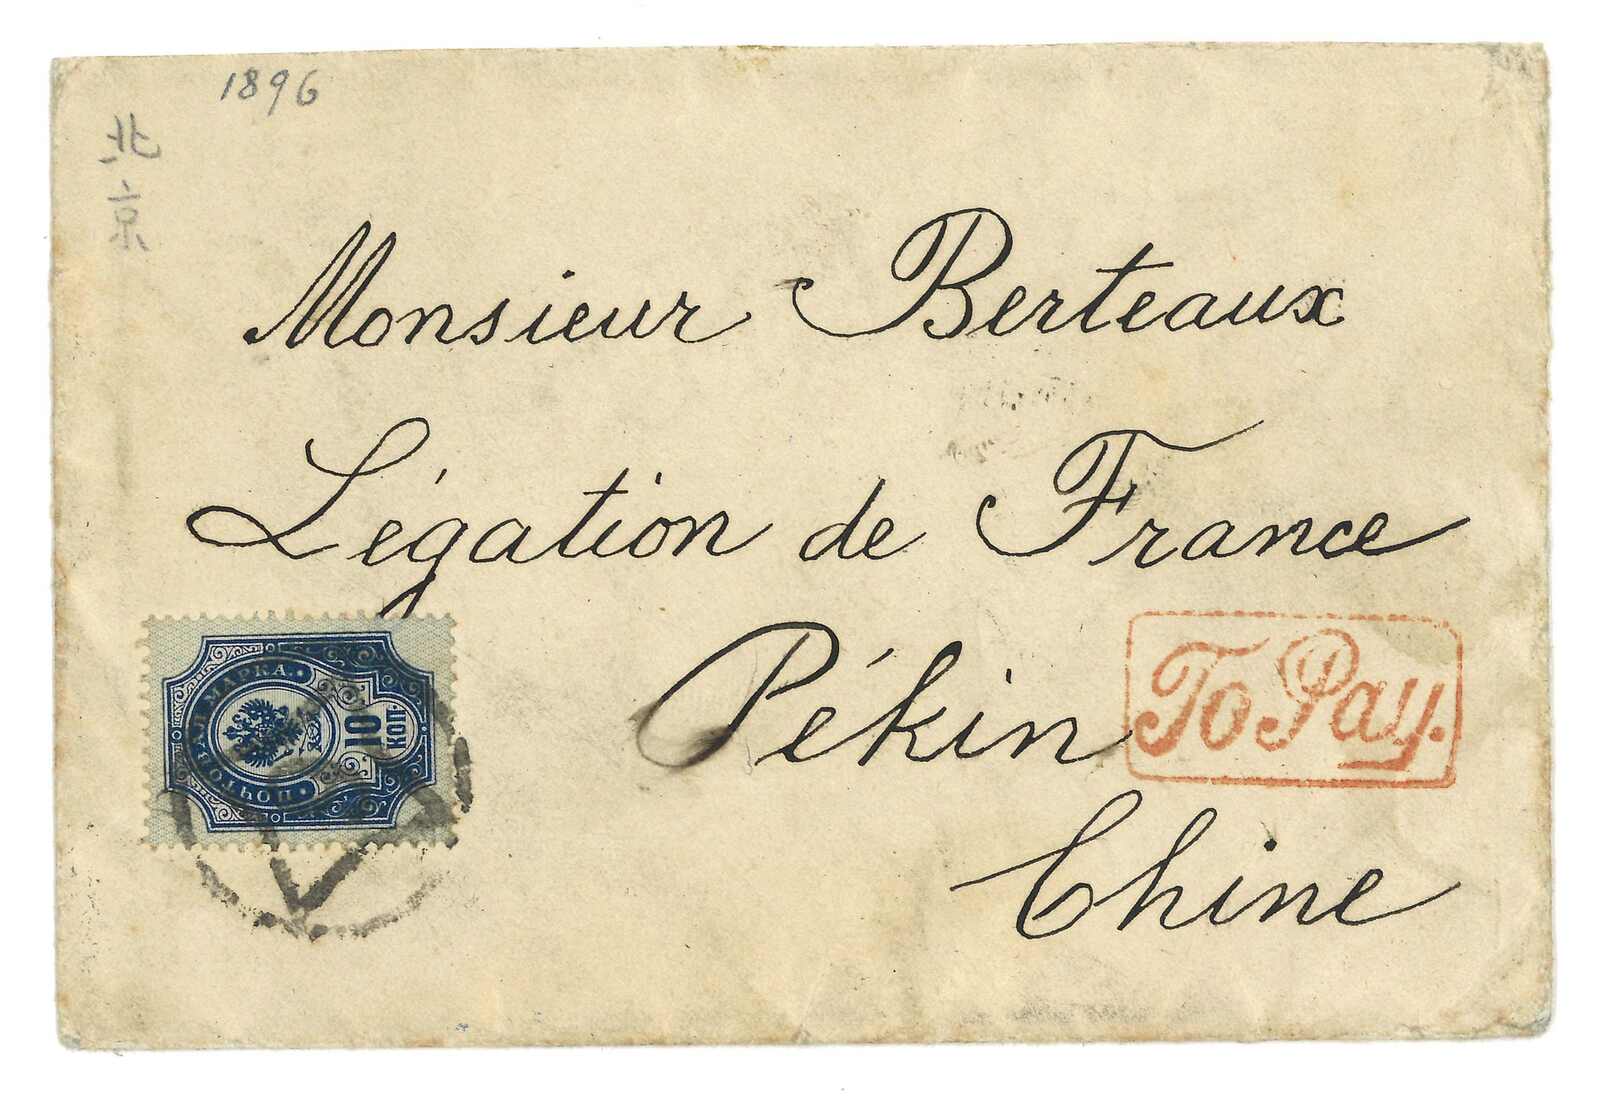 1896
北
京
Monsieur Berteaux
Légation de France
Pékin
To Pay.
Chine
ПОЧТОВАЯ МАРКА.
10
КОП.